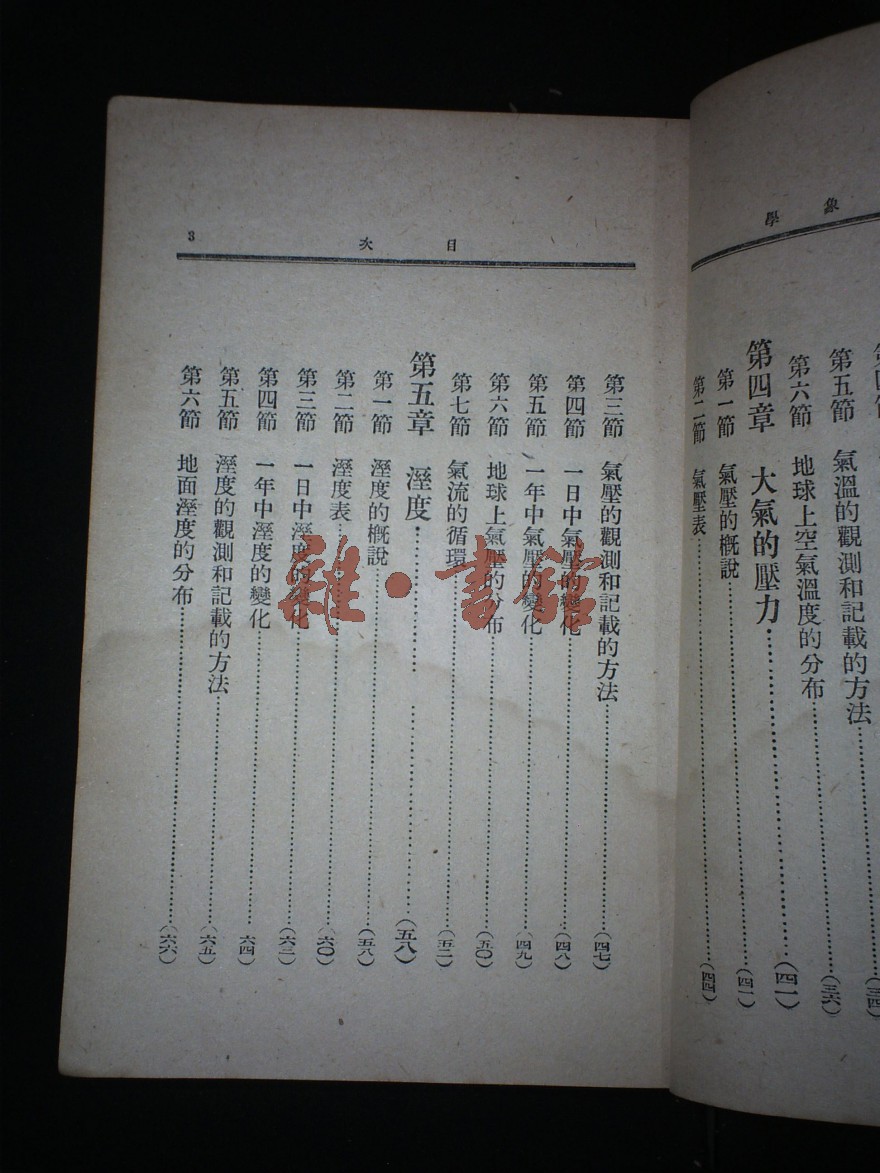 象學
第五節 氣溫的觀測和記載的方法……(三四)
第六節 地球上空氣溫度的分布……(三六)
第四章 大氣的壓力……(四一)
第一節 氣壓的概說……(四一)
第二節 氣壓表……(四四)
目次 3
第三節 氣壓的觀測和記載的方法……(四七)
第四節 一日中氣壓的變化……(四八)
第五節 一年中氣壓的變化……(四九)
第六節 地球上氣壓的分布……(五〇)
第七節 氣流的循環……(五二)
第五章 溼度……(五八)
第一節 溼度的概說……(五八)
第二節 溼度表……(六〇)
第三節 一日中溼度的變化……(六三)
第四節 一年中溼度的變化……(六四)
第五節 溼度的觀測和記載的方法……(六五)
第六節 地面溼度的分布……(六六)
雜·書館